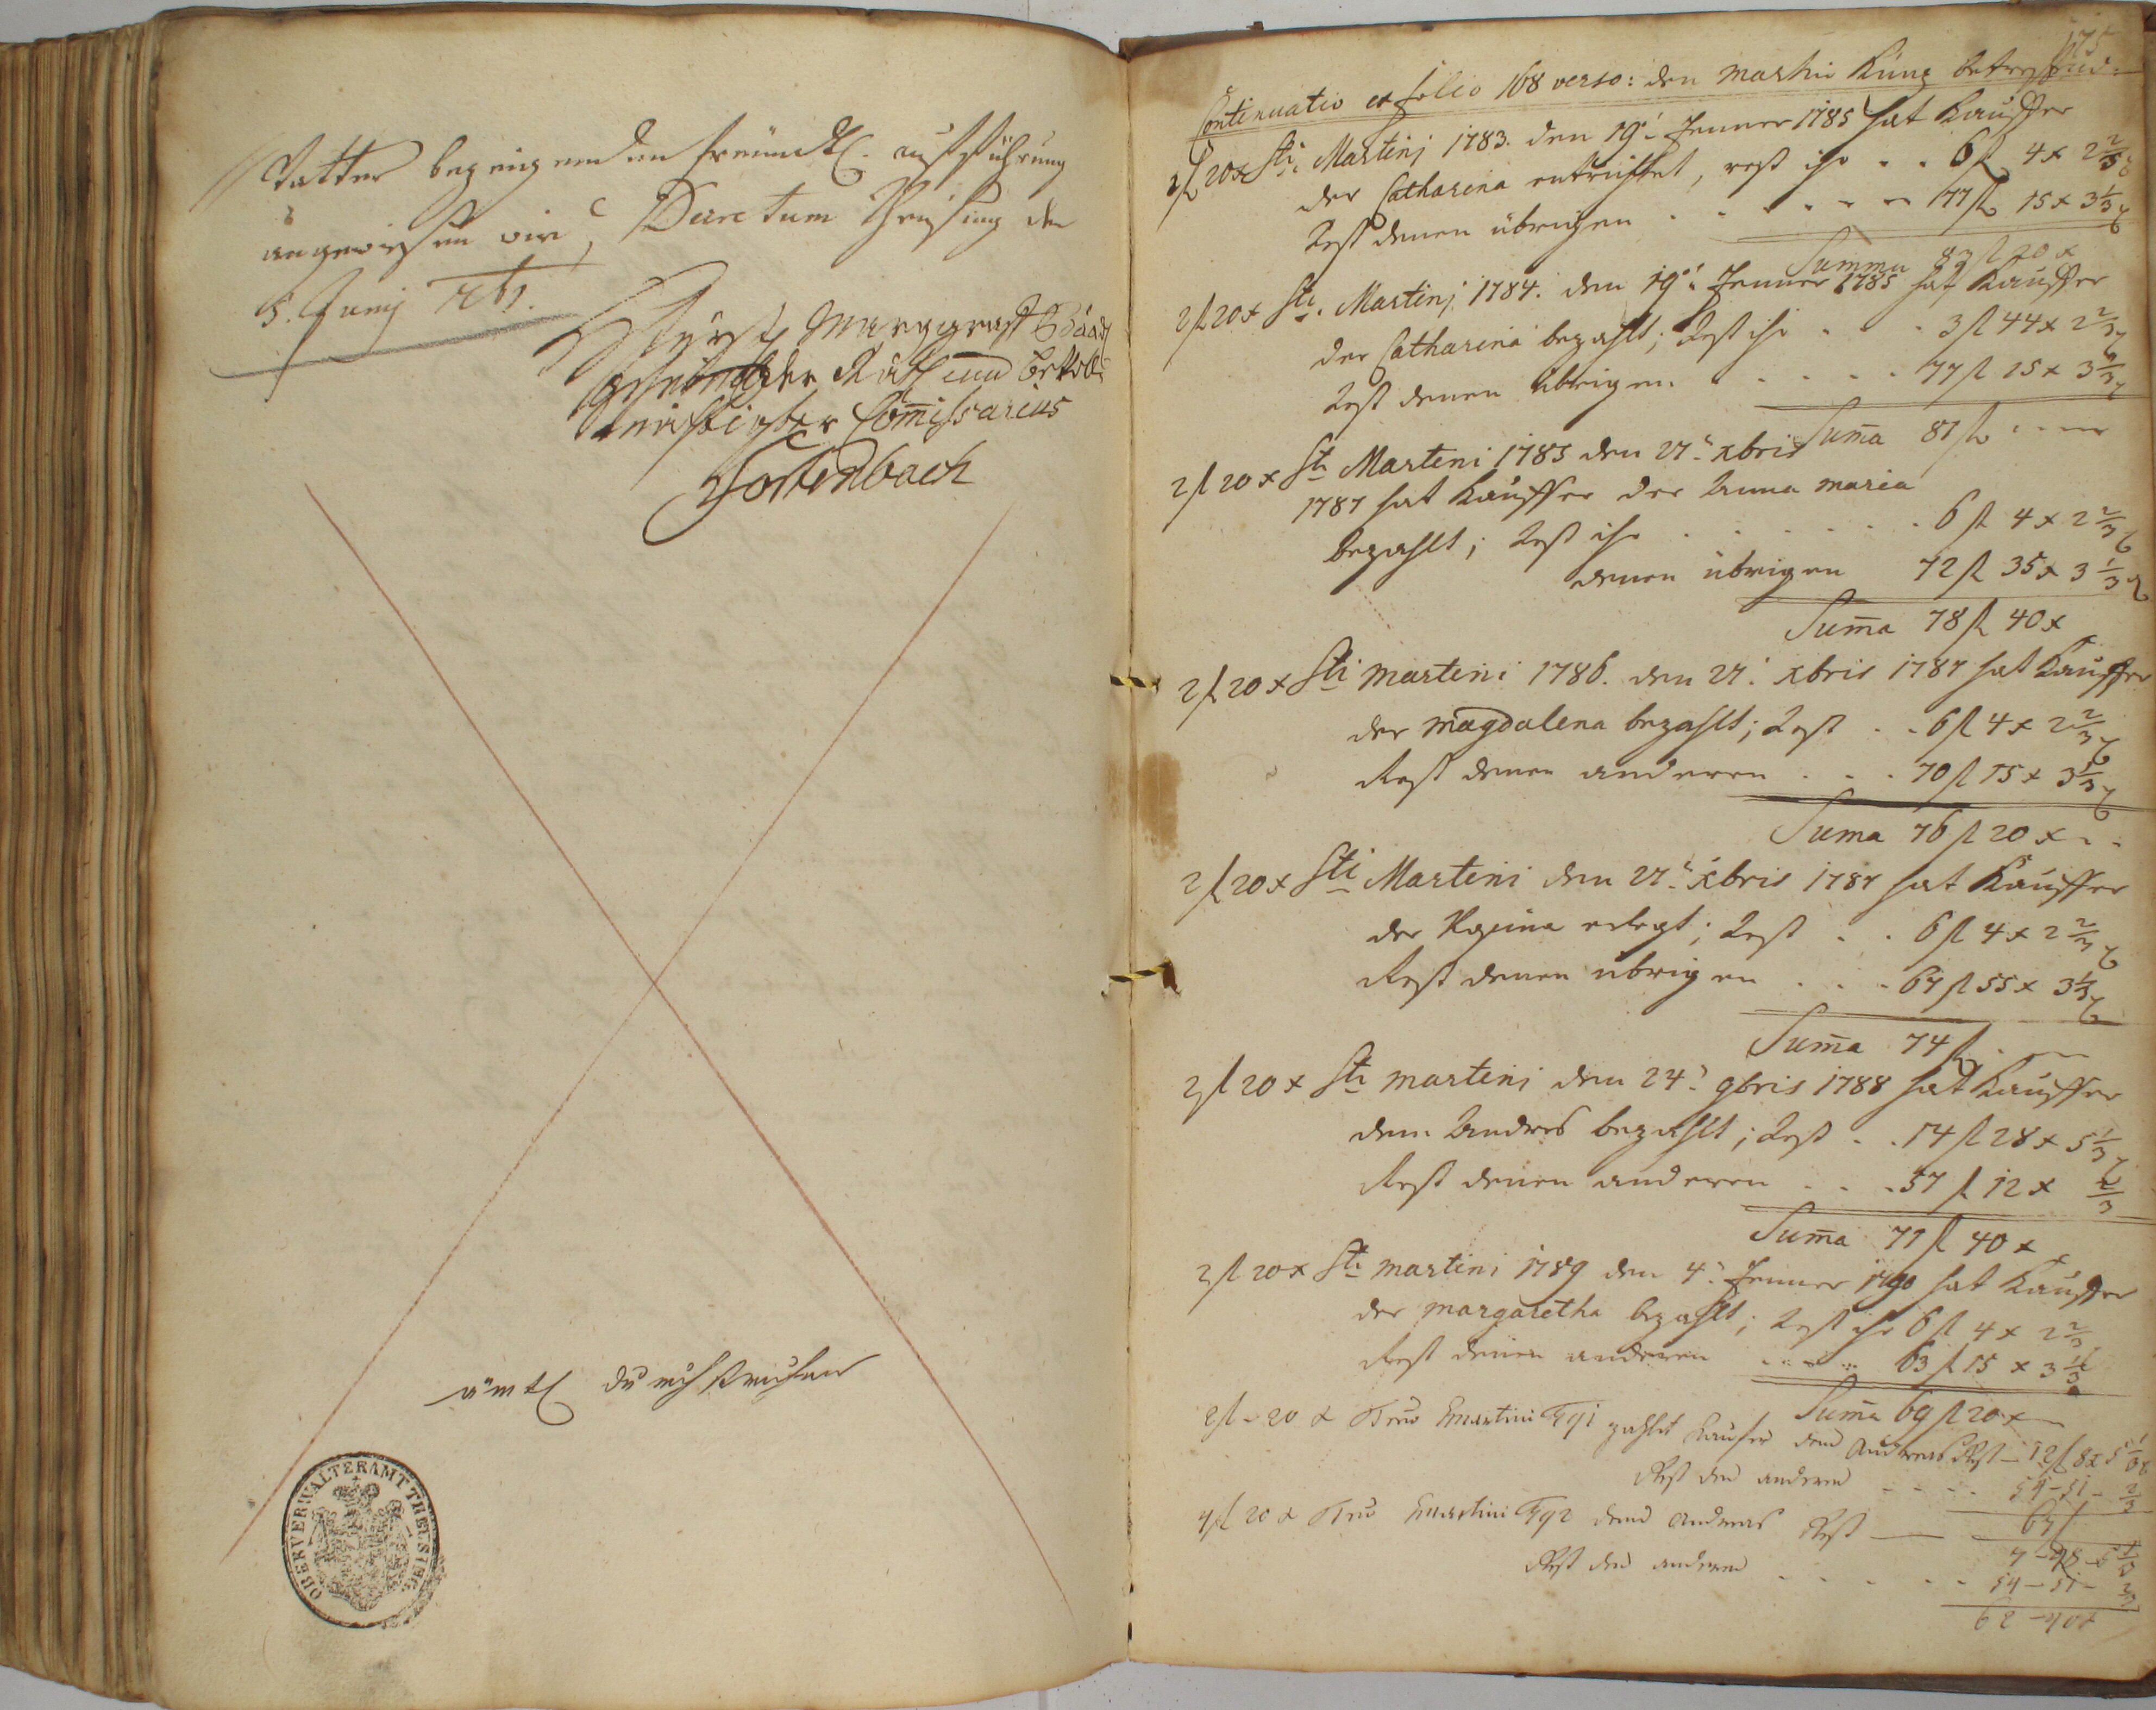 Vatter bezeigenden freündl. aufführung
angewisen wird, Decretum Theüsing den
5. Junij 1761.
Fürstl Marggraff Baad
Rath und bevoll=
mächtigter Commissarius
ämtl durchstrichen
OBERVERWALTERAMT THEUSING
175
Continuatio ex folio 168 verso: den Martin Küng betreffend:
2 fl 20 x Sti Martinj 1783. den 19: Jenner 1785 hat Kauffer
der Catharina entrichtet, rest ihr . . 6 fl 4 x 2 2/3 d
Rest denen übrigen . . . . . 77 fl 15 x 3 1/3 d
Summa 83 fl 20 x
2 fl 20 x Sti. Martinj 1784. den 19: Jenner 1785 hat Kauffer
der Catharina bezahlt; Rest ihr . . . 3 fl 44 x 2 2/3 d
Rest denen übrigen . . . . . 77 fl 15 x 3 1/3 d
Suma 81 fl
2 fl 20 x Sti Marteni 1785 den 27: xbris
1787 hat Kauffer der Anna Maria
bezahlt; Rest ihr . . . . . . 6 fl 4 x 2 2/3 d
denen übrigen 72 fl 35 x 3 1/3 d
Suma 78 fl 40 x
2 fl 20 x Sti Marteni 1786. den 27: xbris 1787 hat Kauffer
der Magdalena bezahlt; Rest . . 6 fl 4 x 2 2/3 d
Rest denen anderen . . . 70 fl 15 x 3 1/3 d
Suma 76 fl 20 x
2 fl 20 x Sti Marteni den 27: xbris 1787 hat Kauffer
der Regina erlegt; Rest . . 6 fl 4 x 2 2/3 d
Rest denen übrigen . . . 67 fl 55 x 3 1/3 d
Suma 74 fl
2 fl 20 x Sti Martenj den 24: 9bris 1788 hat Kauffer
dem Andres bezahlt; Rest . . 14 fl 28 x 5 1/3 d
Rest denen anderen . . . 57 fl 12 x 2/3
Suma 71 fl 40 x
2 fl 20 x Sti Martini 1789 den 4: Jenner 1790 hat Kauffer
der Margaretha bezahlt; Rest ihr 6 fl 4 x 2 2/3
Rest denen anderen . . . 63 fl 15 x 3 1/3
Suma 69 fl 20 x
2 fl - 20 x Martini 791 zahlt Kaufer dem Andreas Rest - 12 fl 8 x 5 1/3 d
Rest den anderen . . . . 54 - 51 - 2/3
67 fl
4 fl 20 x Martini 792 dem Andreas Rest — 7 - 48 - 5 1/3
Rest den anderen . . . . . 54 - 51 - 2/3
62 - 40 x